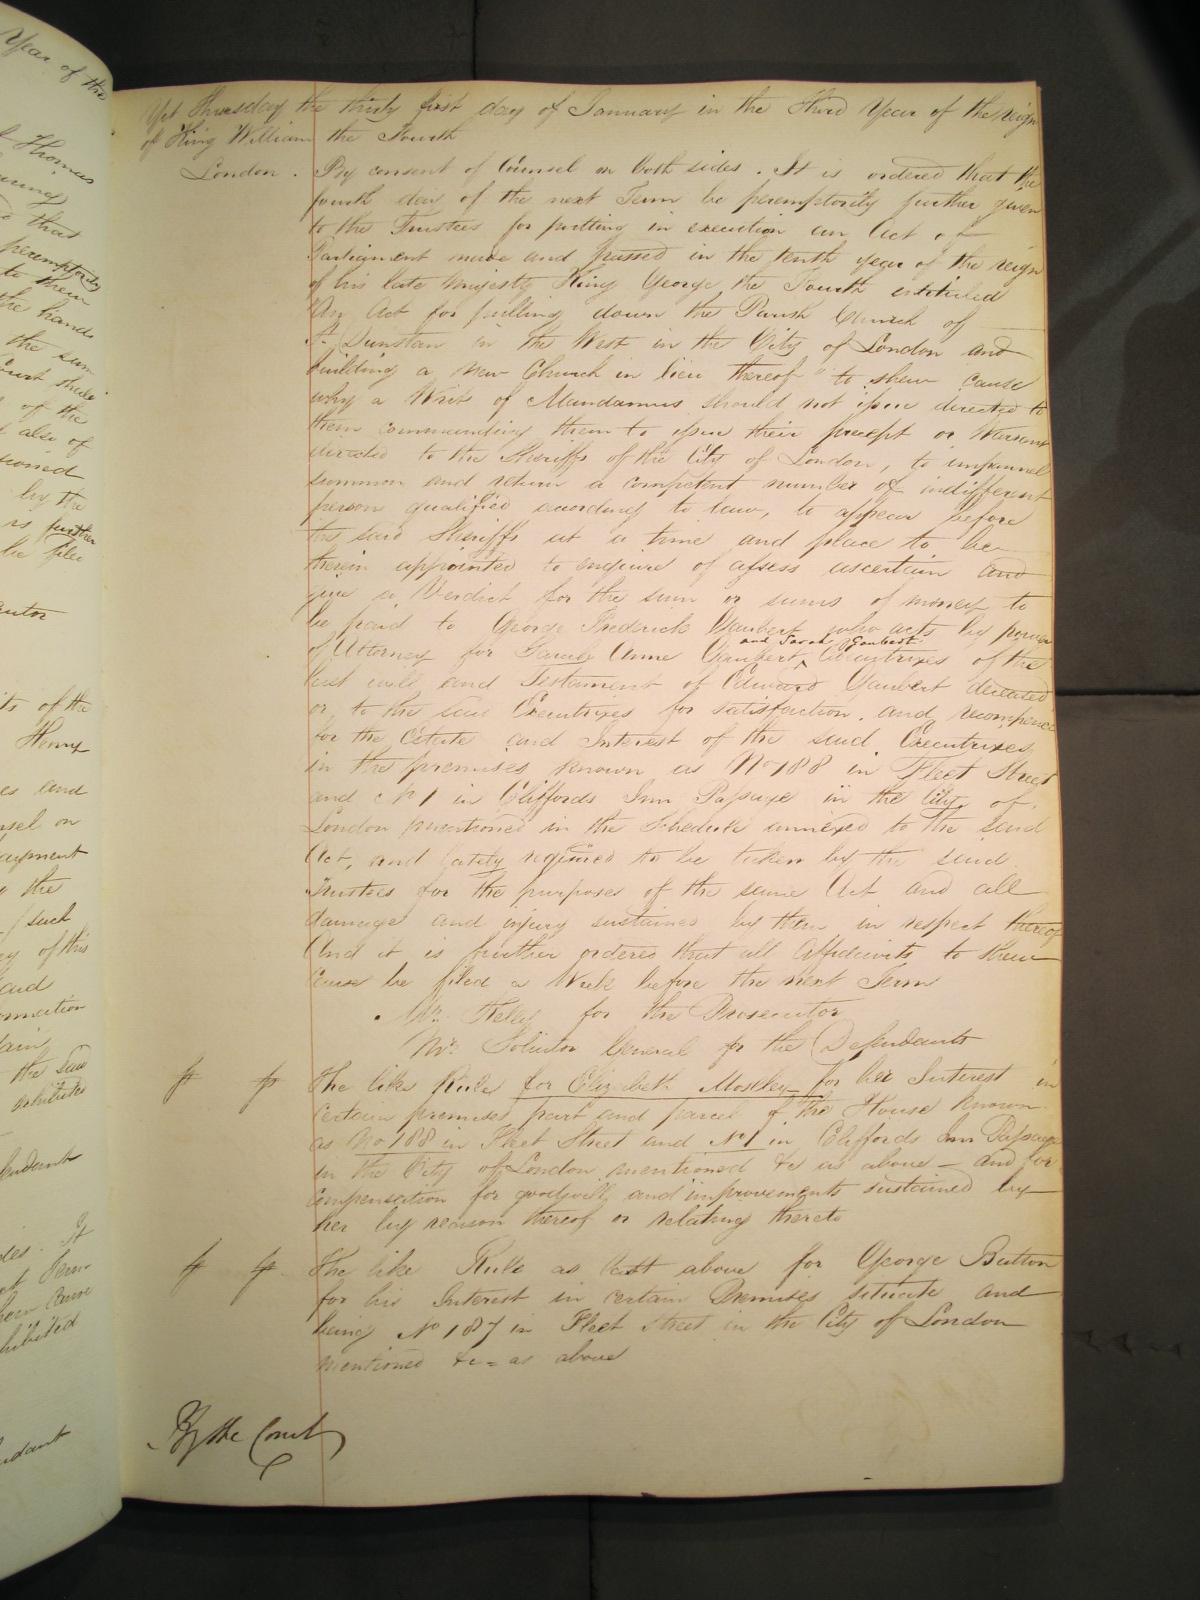 Year of the
Thomas
that
peremptorily
to them
the hands
the sum
of the
also of
by the
is further
be filed
its of the
Henry
es and
nsel on
ayment
the
such
of this
the said
exhibited
fendants
des. It
Term
cause
hibited
endant
Yet Thursday the thirty first day of January in the Third Year of the reign
of King William the Fourth
London. By consent of Counsel on both sides. It is ordered that the
fourth day of the next Term be peremptorily further given
to the Trustees for putting in execution an Act of
Parliament made and passed in the tenth year of the reign
of his late Majesty King George the Fourth intituled
"An Act for pulling down the Parish Church of
St. Dunstan in the West in the City of London and
building a New Church in lieu thereof" to shew cause
why a Writ of Mandamus should not issue directed to
them commanding them to issue their precept or Warrant
directed to the Sheriffs of the City of London, to impannel
summon and return a competent number of indifferent
person qualified according to law, to appear before
the said Sheriffs at a time and place to be
therein appointed to enquire of assess ascertain and
give a Verdict for the sum or sums of money to
be paid to George Frederick Gaubert who acts by power
of Attorney for Sarah Anne Gaubert ^ and Sarah Gaubert Executrixes of the
last will and Testament of Edward Gaubert deceased
or to the said Executrixes for satisfaction and recompence
for the Estate and Interest of the said Executrixes
in the premises known as No 188 in Fleet Street
and No 1 in Cliffords Inn Passage in the City of
London mentioned in the Schedule annexed to the said
Act, and lately required to be taken by the said
Trustees for the purposes of the same Act and all
damage and injury sustained by them in respect thereof
And it is further ordered that all Affidavits to shew
Cause be filed a Week before the next Term
Mr. Kelly for the Prosecutor
Mr. Solicitor General for the Defendants
The like Rule for Elizabeth Mostley for her Interest in
certain premises part and parcel of the House known
as No 188 in Fleet Street and No 1 in Cliffords Inn Passage
in the City of London mentioned &c as above – and for
compensation for goodwill and improvements sustained by
her by reason thereof or relating thereto
The like Rule as last above for George Button
for his Interest in certain Premises situate and
being No 187 in Fleet Street in the City of London
mentioned &c – as above
By the Court